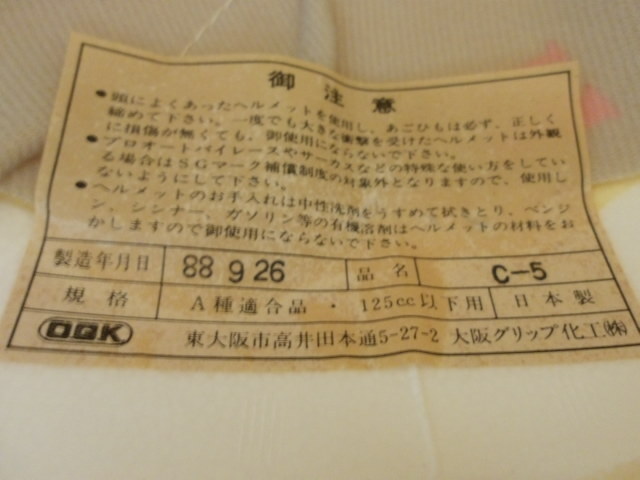 御注意
●頭によくあったヘルメットを使用し、あごひもは必ず、正しく
締めて下さい。一度でも大きな衝撃を受けたヘルメットは外観
に損傷が無くても、御使用にならないで下さい。
●プロオートバイレースやサーカスなどの特殊な使い方をしてい
る場合はSGマーク補償制度の対象外となりますので、使用し
ないようにして下さい。
●ヘルメットのお手入れは中性洗剤をうすめて拭きとり、ベンジ
ン、シンナー、ガソリン等の有機溶剤はヘルメットの材料をお
かしますので御使用にならないで下さい。
製造年月日 88 9 26 品名 C-5
規格 A種適合品・125cc以下用 日本製
OGK 東大阪市高井田本通5-27-2 大阪グリップ化工㈱